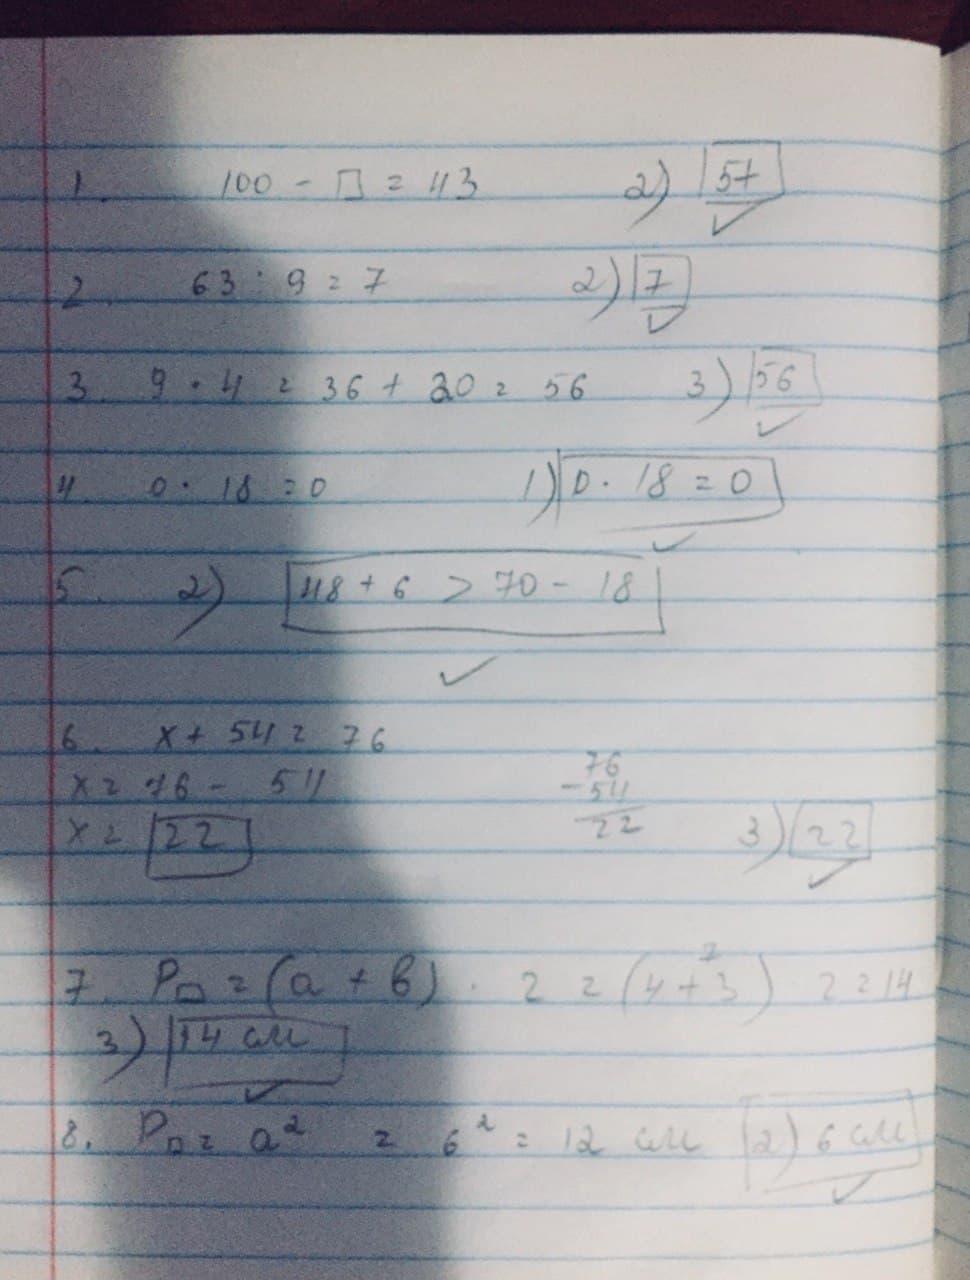 1. 100 - □ = 43 2) 57
2. 63 : 9 = 7 2) 7
3. 9 · 4 = 36 + 20 = 56 3) 56
4. 0 · 18 = 0 1) 0 · 18 = 0
5. 2) 48 + 6 > 70 - 18
6. x + 54 = 76
x = 76 - 54
x = 22
76
- 54
22
3) 22
7. P▭ = (a + b) · 2 = (4 + 3) 2 = 14
7
3) 14 см
8. P□ = a² = 6² = 12 см 2) 6 см